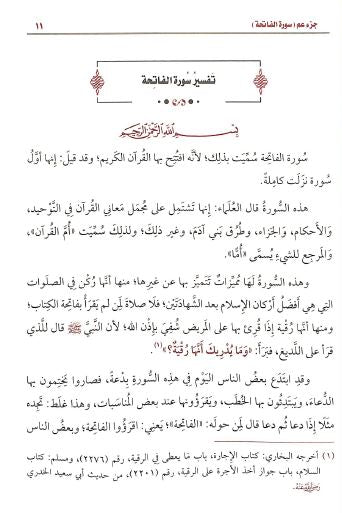 جزء عم (سورة الفاتحة) ١١
تفسير سُورة الفَاتِحة
بِسْمِ اللَّهِ الرَّحْمَنِ الرَّحِيمِ
سُورة الفاتحة سُمِّيَت بذلك؛ لأنَّه افتُتِحَ بها القُرآن الكَريم؛ وقد قيلَ: إنها أوَّلُ
سُورة نزَلَت كامِلةً.
هذه السُّورةُ قال العُلَماء: إنها تَشتَمِل على مُجمَل مَعاني القُرآن في التَّوْحيد،
والأَحكام، والجَزاء، وطُرُق بَني آدَمَ، وغير ذلِكَ؛ ولذلِكَ سُمِّيَت «أُمَّ القُرآن»،
والمَرجِع للشيءِ يُسمَّى «أُمًّا».
وهذه السُّورةُ لها مُميِّزاتٌ تَتَميَّز بها عن غيرها؛ منها أنَّها رُكْن في الصلَوات
التي هي أَفضَلُ أَركان الإسلام بعد الشَّهادَتَيْن؛ فلا صلاةَ لِمَن لم يَقرَأْ بفاتِحة الكِتاب؛
ومنها أنَّها رُقْية إذا قُرِئ بها على المَريض شُفِيَ بإِذْن الله؛ لأن النَّبيَّ ﷺ قال للَّذي
قرَأ على اللَّديغ، فبَرَأ: «وَمَا يُدْرِيكَ أَنَّهَا رُقْيَةٌ؟»(١).
وقَدِ ابتَدَع بعضُ الناس اليَوْمَ في هذِهِ السُّورةِ بِدْعةً، فصاروا يَختِمون بها
الدُّعاءَ، ويَبتَدِئون بها الخُطَب، ويَقرَؤُونها عند بعض المُناسَبات، وهذا غلَط: تَجِده
مثَلًا إذا دعا ثُم دعا قال لِمَن حولَه: «الفاتِحةَ»؛ يَعنِي: اقرَؤُوا الفاتِحة؛ وبعضُ الناس
(١) أخرجه البخاري: كتاب الإجارة، باب ما يعطى في الرقية، رقم (٢٢٧٦)، ومسلم: كتاب
السلام، باب جواز أخذ الأجرة على الرقية، رقم (٢٢٠١)، من حديث أبي سعيد الخدري
رضي الله عنه.